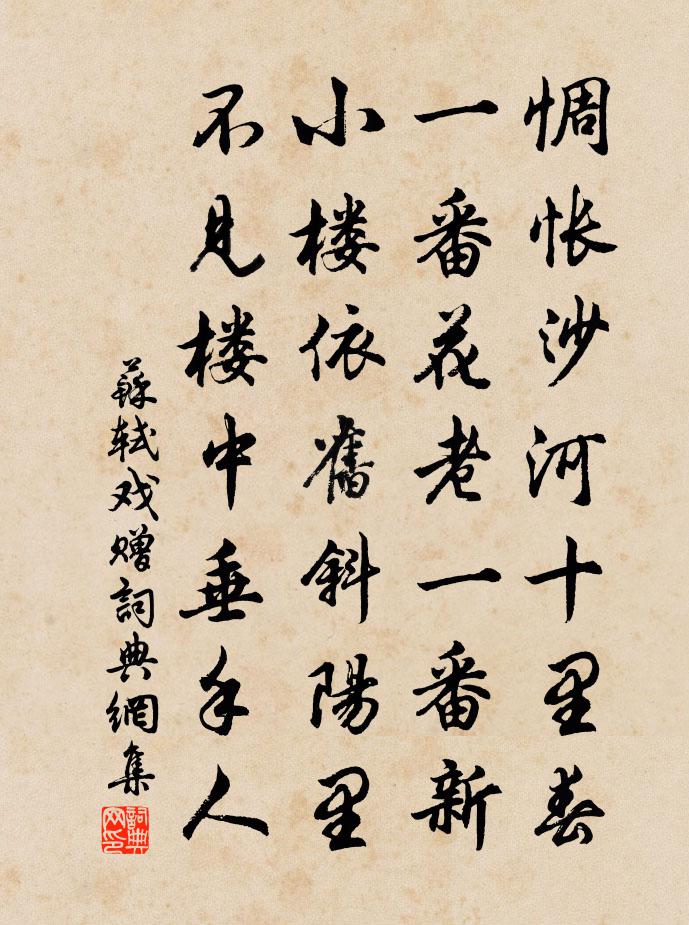 惆怅沙河十里春
一番花老一番新
小楼依舊斜陽里
不見楼中垂手人
蘇軾戏赠詞典網集
詞典网印